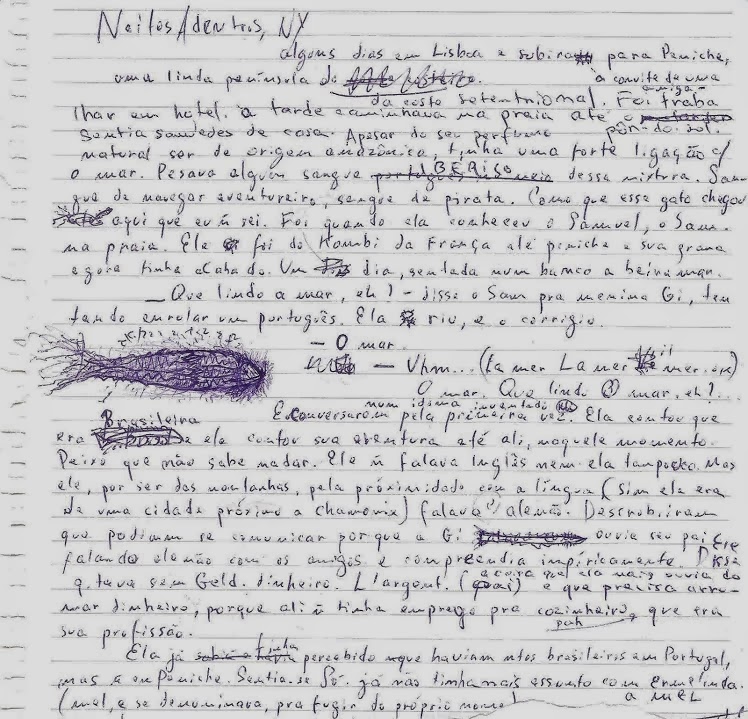 Noites Adentros, NY
alguns dias em Lisboa e subiram para Peniche,
uma linda península da
à convite de uma
amiga
da costa setentrional. Foi traba
lhar em hotel. à tarde caminhava na praia até o
pôr-do-sol.
Sentia saudades de casa. Apesar do seu perfume
natural ser de origem amazônica, tinha uma forte ligação c/
o mar. Pesava algum sangue IBÉRICO dessa mistura. San
gue de navegar aventureiro, sangue de pirata. Como que esse gato chegou
até aqui que eu ñ sei. Foi quando ela conheceu o Samuel, o Sam.
na praia. Ele foi de Kombi da França até peniche e sua grana
agora tinha acabado. Um dia, sentada num banco a beira mar.
— Que lindo a mar, eh? - disse o Sam pra menina Gi, ten
tando enrolar um português. Ela riu, e o corrigiu.
- O mar.
- Uhm... (La mer La mer mer..)
O mar. Que lindo O mar, eh?...
num idioma inventado
E conversaram pela primeira vez. Ela contou que
Brasileira
era e ele contou sua aventura até ali, naquele momento.
Peixe que não sabe nadar. Ele ñ falava Inglês nem ela tampouco. Mas
ele, por ser das montanhas, pela próximidade com a língua (Sim ele era
de uma cidade próximo a chamonix) falava alemão. Descrobriram
que podiam se comunicar porque a Gi ouvia seu pai
falando alemão com os amigos e compreendia impíricamente. Ele Disse
q. tava sem Geld. dinheiro. L'argent. (a coisa que ela mais ouvia do pai) e que precisa arru
mar dinheiro, porque ali ñ tinha emprego pra cozinheiro, que era
sua profissão.
Ela já tinha percebido que haviam mtos brasileiros em Portugal,
mas ñ em Peniche. Sentia-se Só. já não tinha mais assunto com Ermelinda.
a MEL
(mel, e se denominava, pra fugir do próprio nome)